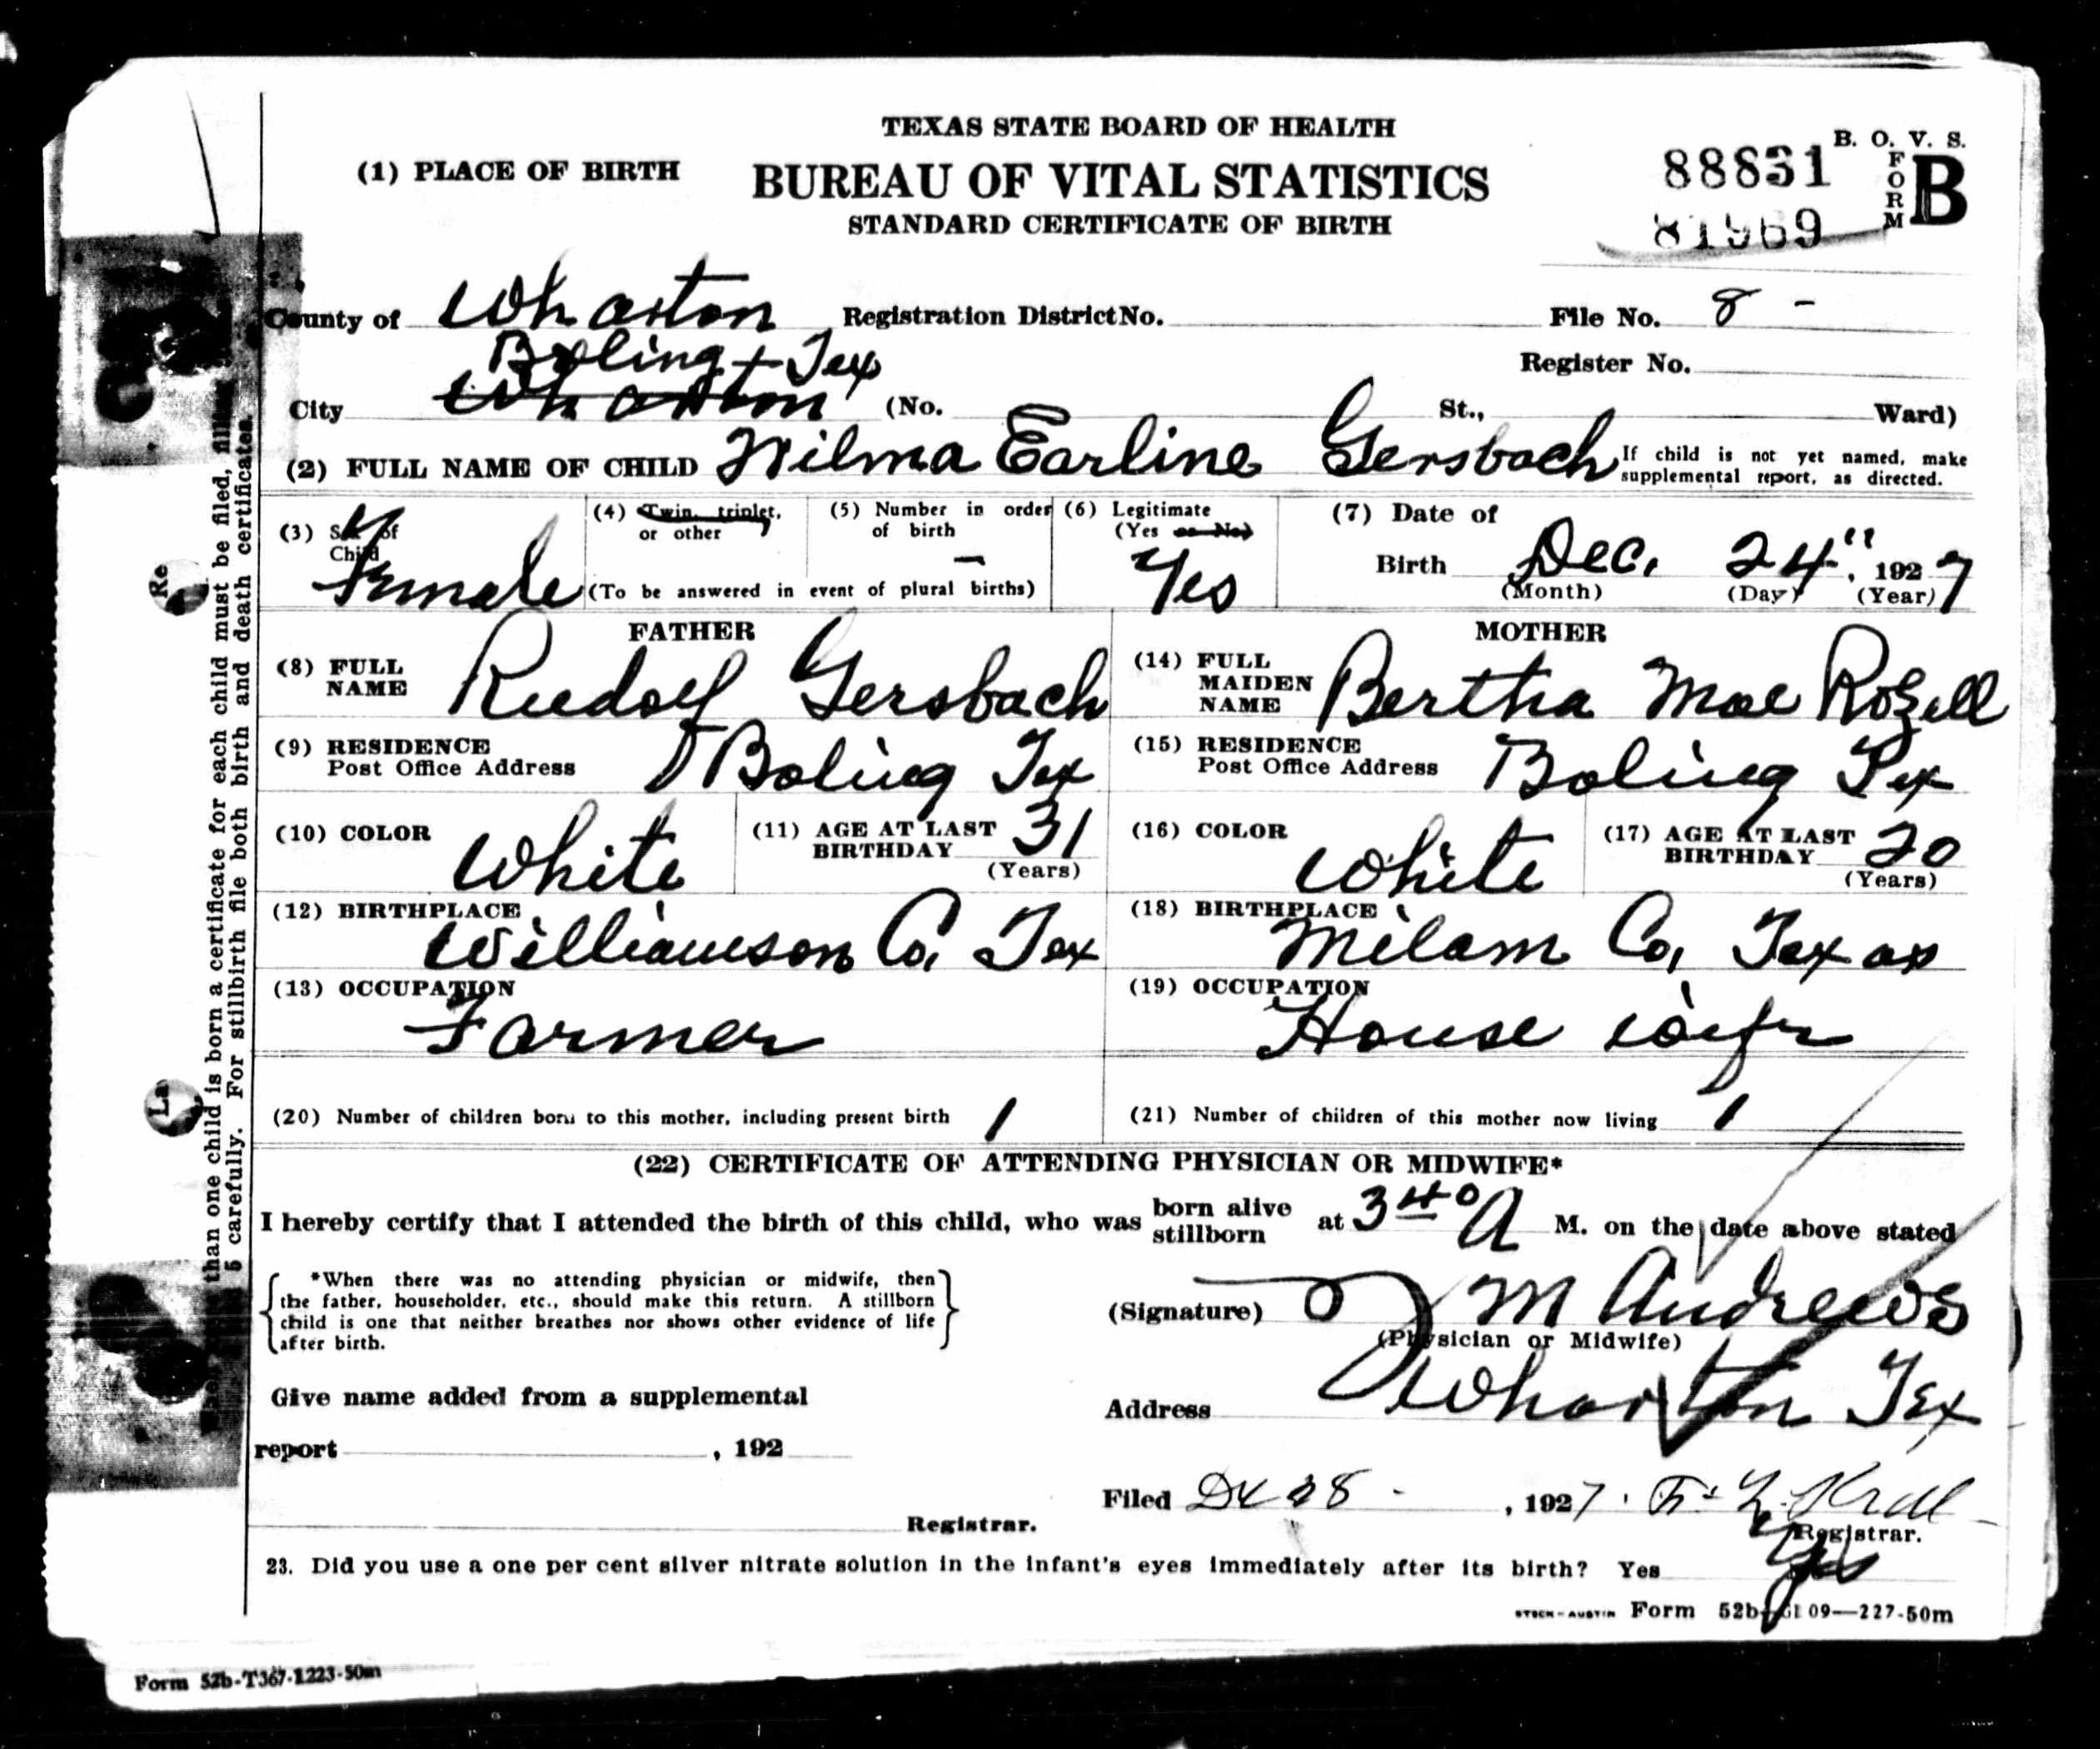 TEXAS STATE BOARD OF HEALTH
B. O. V. S.
(1) PLACE OF BIRTH BUREAU OF VITAL STATISTICS 88831 FORM B
STANDARD CERTIFICATE OF BIRTH 81969
County of Wharton Registration District No. File No. 8 -
Boling, Tex
Register No.
City Wharton (No. St., Ward)
(2) FULL NAME OF CHILD Wilma Earline Gersbach If child is not yet named, make
supplemental report, as directed.
(3) Sex of Child Female
(4) Twin, triplet, or other
(5) Number in order of birth —
(To be answered in event of plural births)
(6) Legitimate (Yes or No) Yes
(7) Date of Birth Dec. 24", 1927
(Month) (Day) (Year)
FATHER
(8) FULL NAME Rudolf Gersbach
(9) RESIDENCE Post Office Address Boling Tex
(10) COLOR White
(11) AGE AT LAST BIRTHDAY 31
(Years)
(12) BIRTHPLACE Williamson Co. Tex
(13) OCCUPATION Farmer
MOTHER
(14) FULL MAIDEN NAME Bertha Mae Rozell
(15) RESIDENCE Post Office Address Boling Tex
(16) COLOR White
(17) AGE AT LAST BIRTHDAY 20
(Years)
(18) BIRTHPLACE Milam Co, Texas
(19) OCCUPATION House wife
(20) Number of children born to this mother, including present birth 1
(21) Number of children of this mother now living 1
(22) CERTIFICATE OF ATTENDING PHYSICIAN OR MIDWIFE*
I hereby certify that I attended the birth of this child, who was born alive stillborn at 3 40 A M. on the date above stated
*When there was no attending physician or midwife, then
the father, householder, etc., should make this return. A stillborn
child is one that neither breathes nor shows other evidence of life
after birth.
(Signature) J M Andrews
(Physician or Midwife)
Give name added from a supplemental
Address Wharton Tex
report , 192
Filed Dec 28 - , 1927.
Registrar.
Registrar.
23. Did you use a one per cent silver nitrate solution in the infant's eyes immediately after its birth? Yes Yes
STECK-AUSTIN Form 52b 09—227-50m
Form 52b-T367-1223-50m
than one child is born a certificate for each child must be filed,
5 carefully. For stillbirth file both birth and death certificates.
Re
La